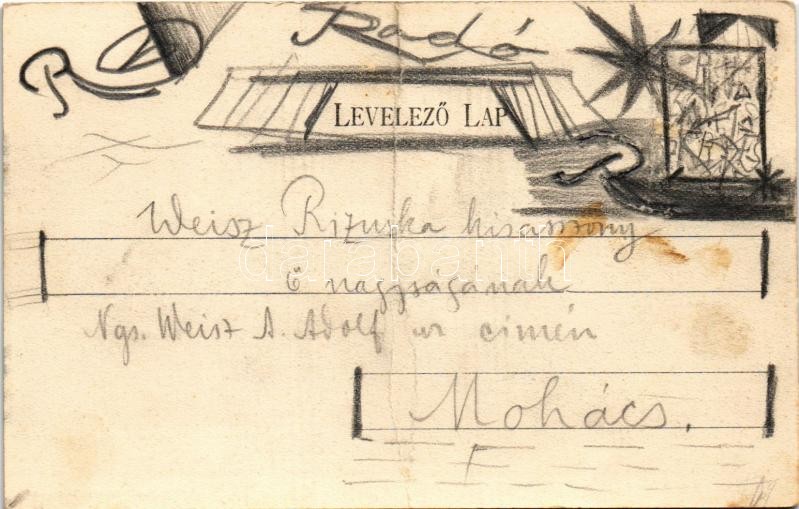 R
Radó
LEVELEZŐ LAP
R
Weisz Rizuska kisasszony
ő nagyságának
Ngs. Weisz A. Adolf ur cimén
Mohács.